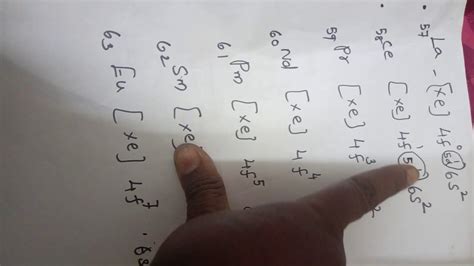 57 La - [xe] 4f⁰ 5d¹ 6s²
58 Ce [xe] 4f¹ 6s²
59 Pr [xe] 4f³ 2
60 Nd [xe] 4f⁴
61 Pm [xe] 4f⁵
62 Sm [xe]
63 Eu [xe] 4f⁷ . 6s